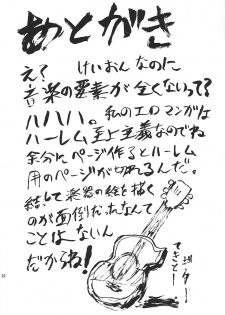 あとがき
え? けいおんなのに
音楽の要素が全くないって?
ハハハ。私のエロマンガは
ハーレム至上主義なのでね
余分にページ作るとハーレム
用のページが切れるんだ。
決して楽器の絵を描く
のが面倒だったなんて
ことはないん
だからね!
ギター
てきとー